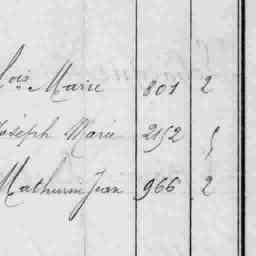 çois Marie 801 2
Joseph Marie 2152 5
Mathurin Jean 966 2